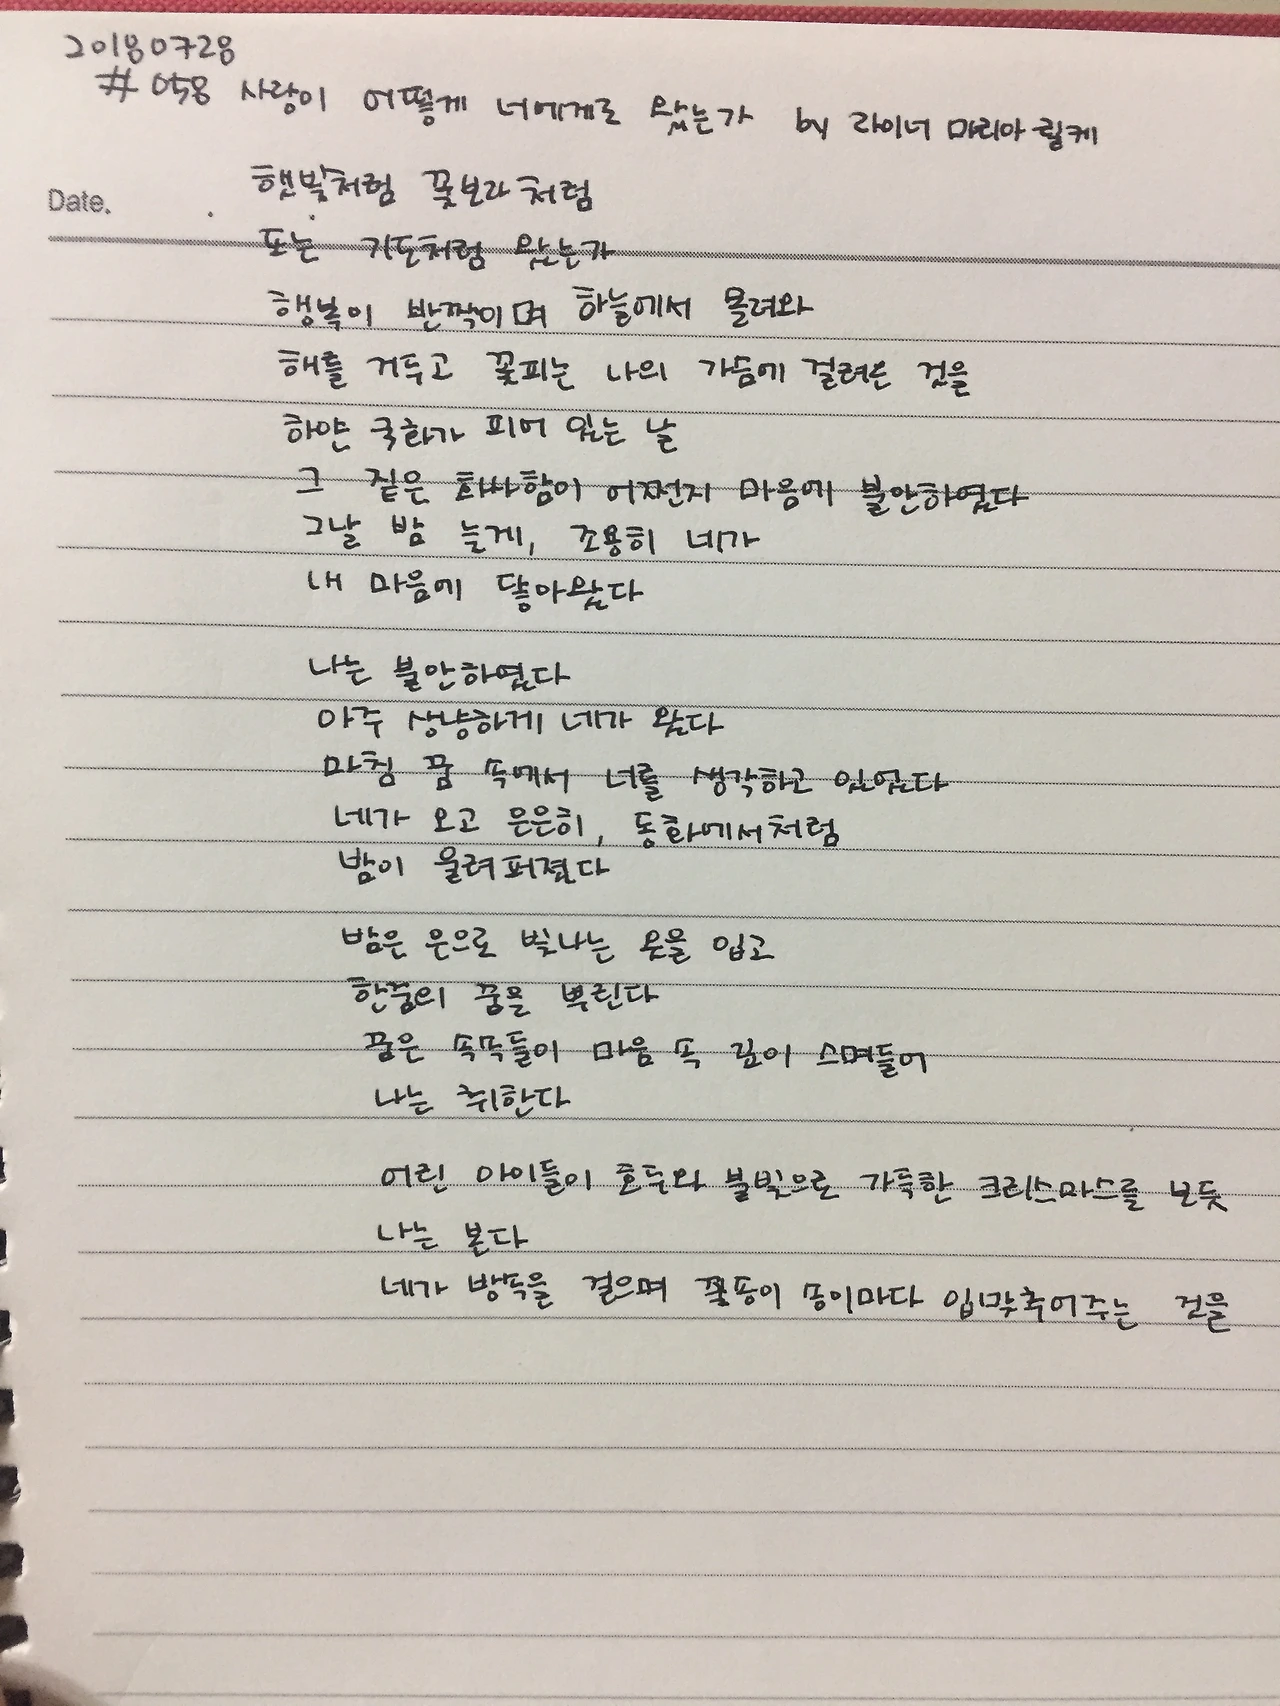 20180728
# 058 사랑이 어떻게 너에게로 왔는가 by 라이너 마리아 릴케
Date.
햇빛처럼 꽃보라처럼
또는 기도처럼 왔는가
행복이 반짝이며 하늘에서 몰려와
해를 거두고 꽃피는 나의 가슴에 걸려온 것을
하얀 국화가 피어 있는 날
그 짙은 화사함이 어쩐지 마음에 불안하였다
그날 밤 늦게, 조용히 네가
내 마음에 닿아왔다
나는 불안하였다
아주 상냥하게 네가 왔다
마침 꿈 속에서 너를 생각하고 있었다
네가 오고 은은히, 동화에서처럼
밤이 울려 퍼졌다
밤은 은으로 빛나는 옷을 입고
한줌의 꿈을 뿌린다
꿈은 속속들이 마음 속 깊이 스며들어
나는 취한다
어린 아이들이 호두와 불빛으로 가득한 크리스마스를 보듯
나는 본다
네가 밤속을 걸으며 꽃송이 송이마다 입맞추어주는 것을